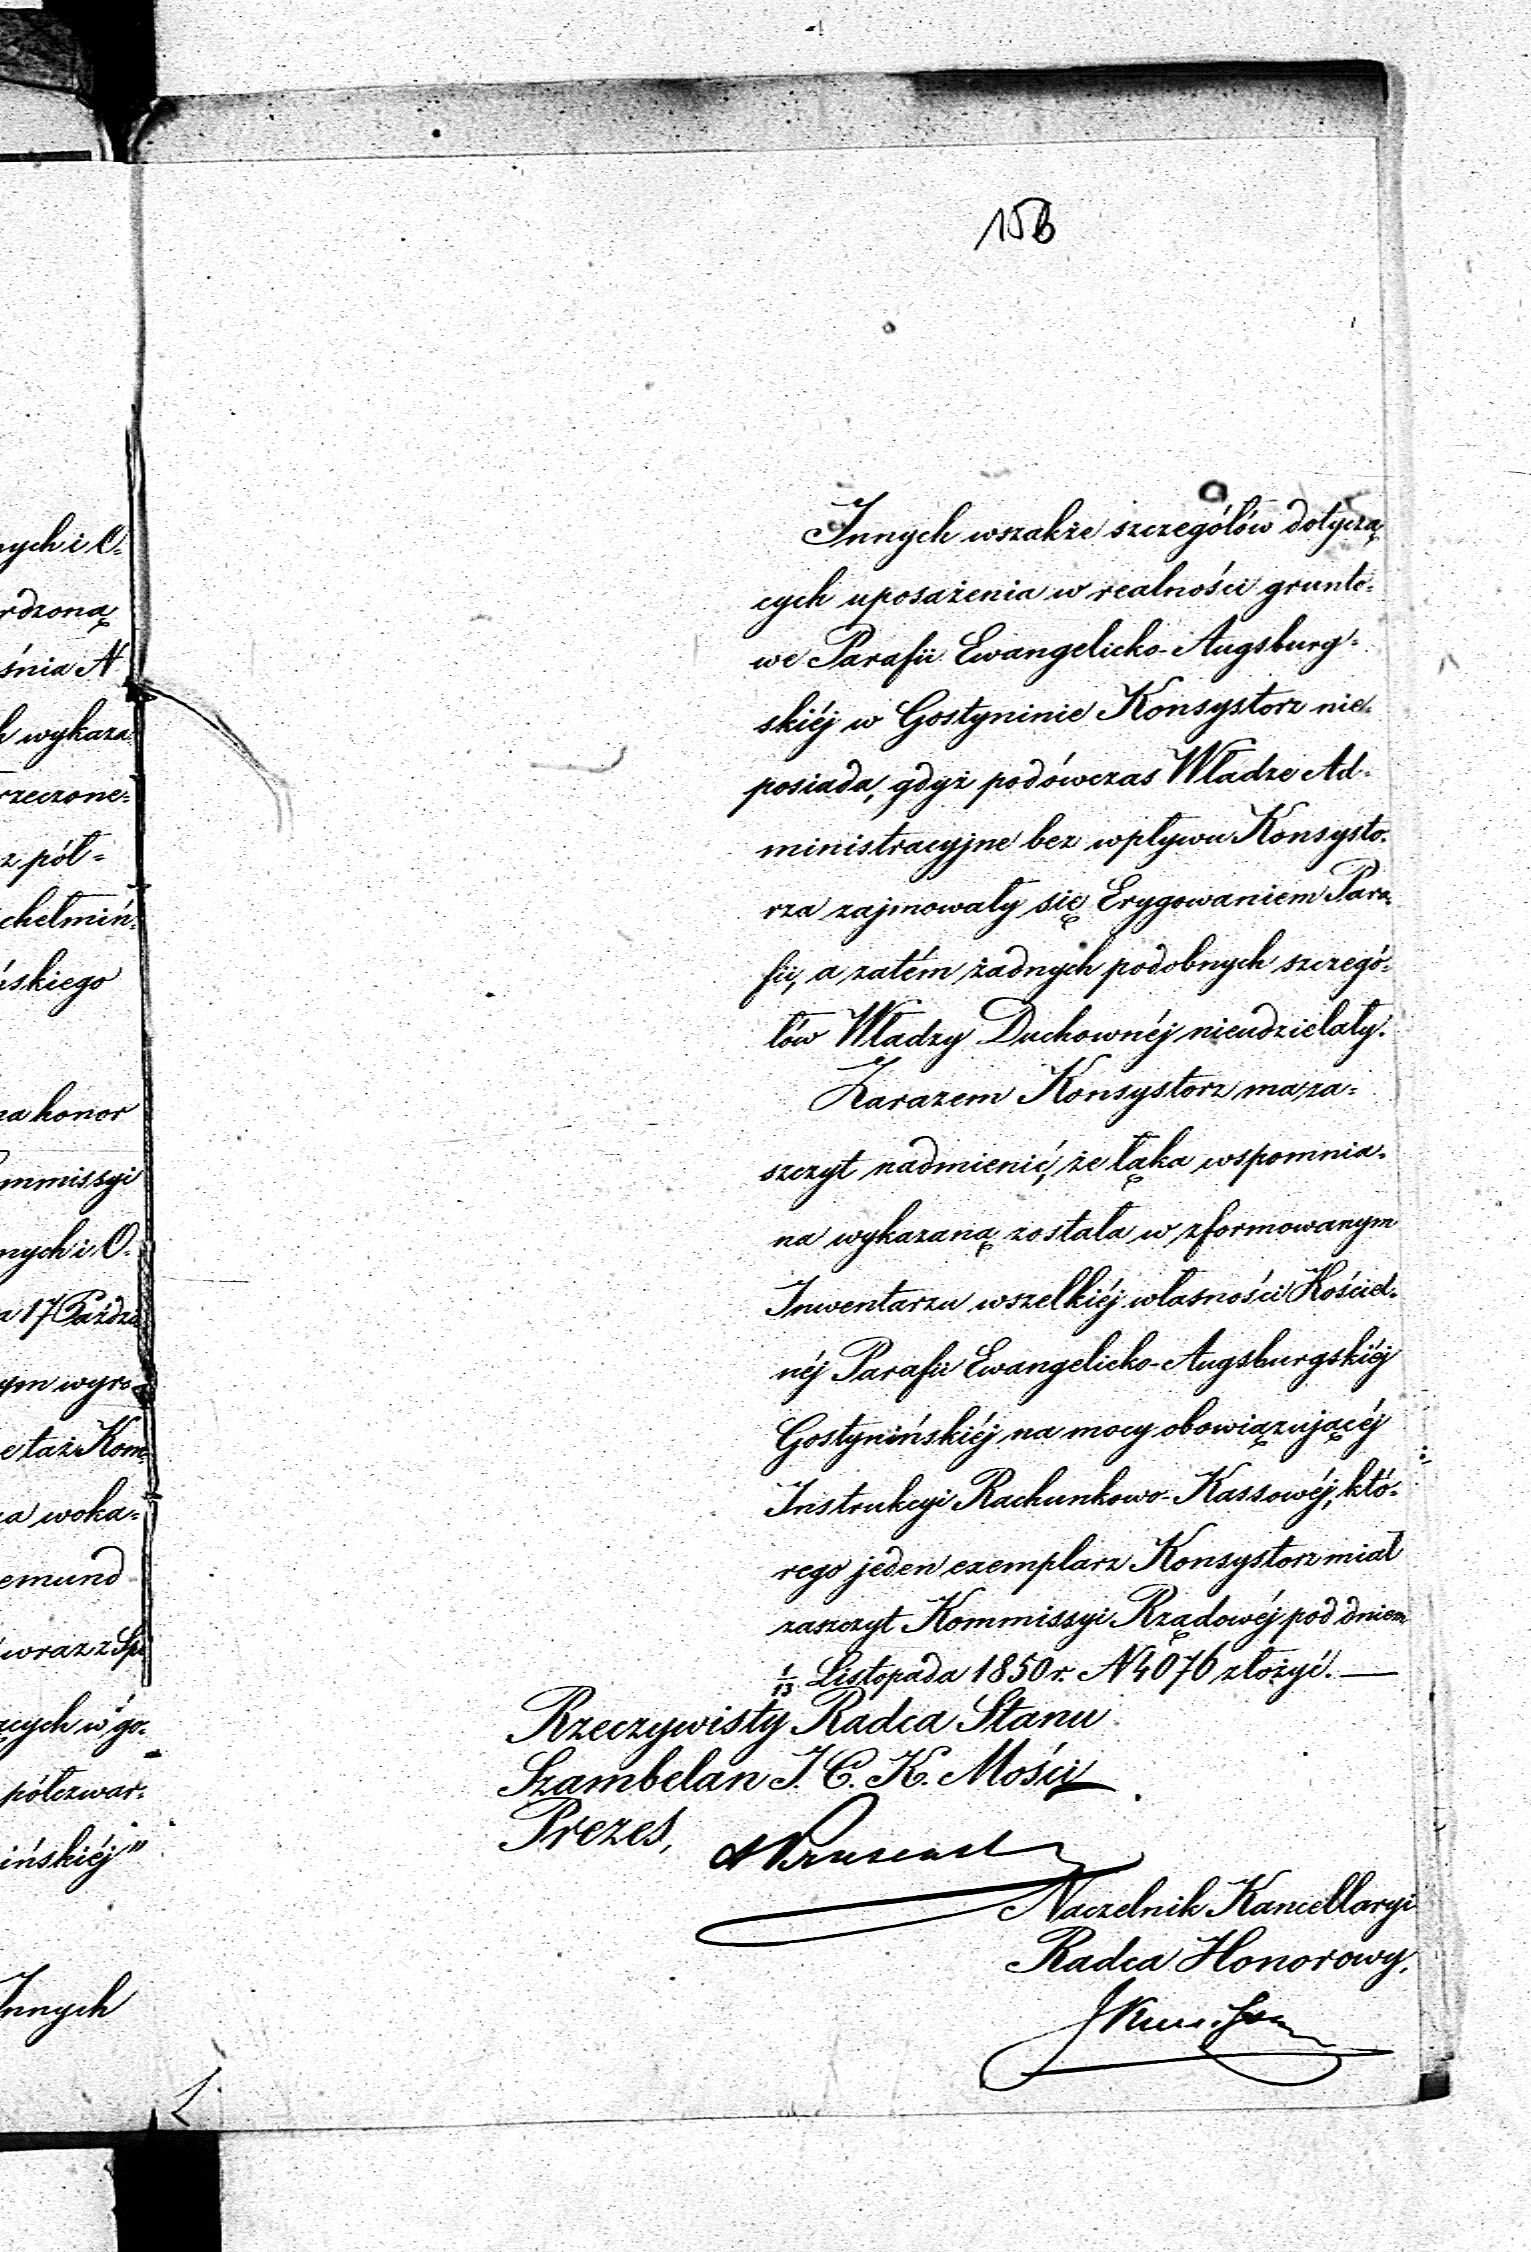 156
Innych wszakże szczegółów dotyczą
cych uposażenia w realności grunto-
we Parafii Ewangelicko-Augsburg-
skiéj w Gostyninie Konsystorz nie-
posiada, gdyż podówczas Władze Ad-
ministracyjne bez wpływu Konsysto-
rza zajmowały się Erygowaniem Para-
fii, a zatém żadnych podobnych szczegó-
łów Władzy Duchownéj nieudzielały.
Zarazem Konsystorz ma za-
szczyt nadmienić, że łąka wspomnia-
na wykazaną została w zformowanym
Inwentarzu wszelkiéj własności Kościel-
néj Parafii Ewangelicko-Augsburgskiéj
Gostynińskiéj na mocy obowiązującéj
Instrukcyi Rachunkowo-Kassowéj, któ-
rego jeden exemplarz Konsystorz miał
zaszczyt Kommissyi Rządowéj pod dniem
1/13 Listopada 1850 r. N 4076 złożyć. —
Rzeczywisty Radca Stanu
Szambelan J. C. K. Mości
Prezes,
Naczelnik Kancellaryi
Radca Honorowy,
ych i O-
rdzoną
śnia N
h wykaza
rzeczone-
z pół-
chełmiń-
skiego
a honor
mmissyi
nych i O-
a 17 Paźdz
ym wyro
e taż Kom
a woka-
emund
wraz z Spe
cych w go-
półczwar-
ińskiéj"
Innych